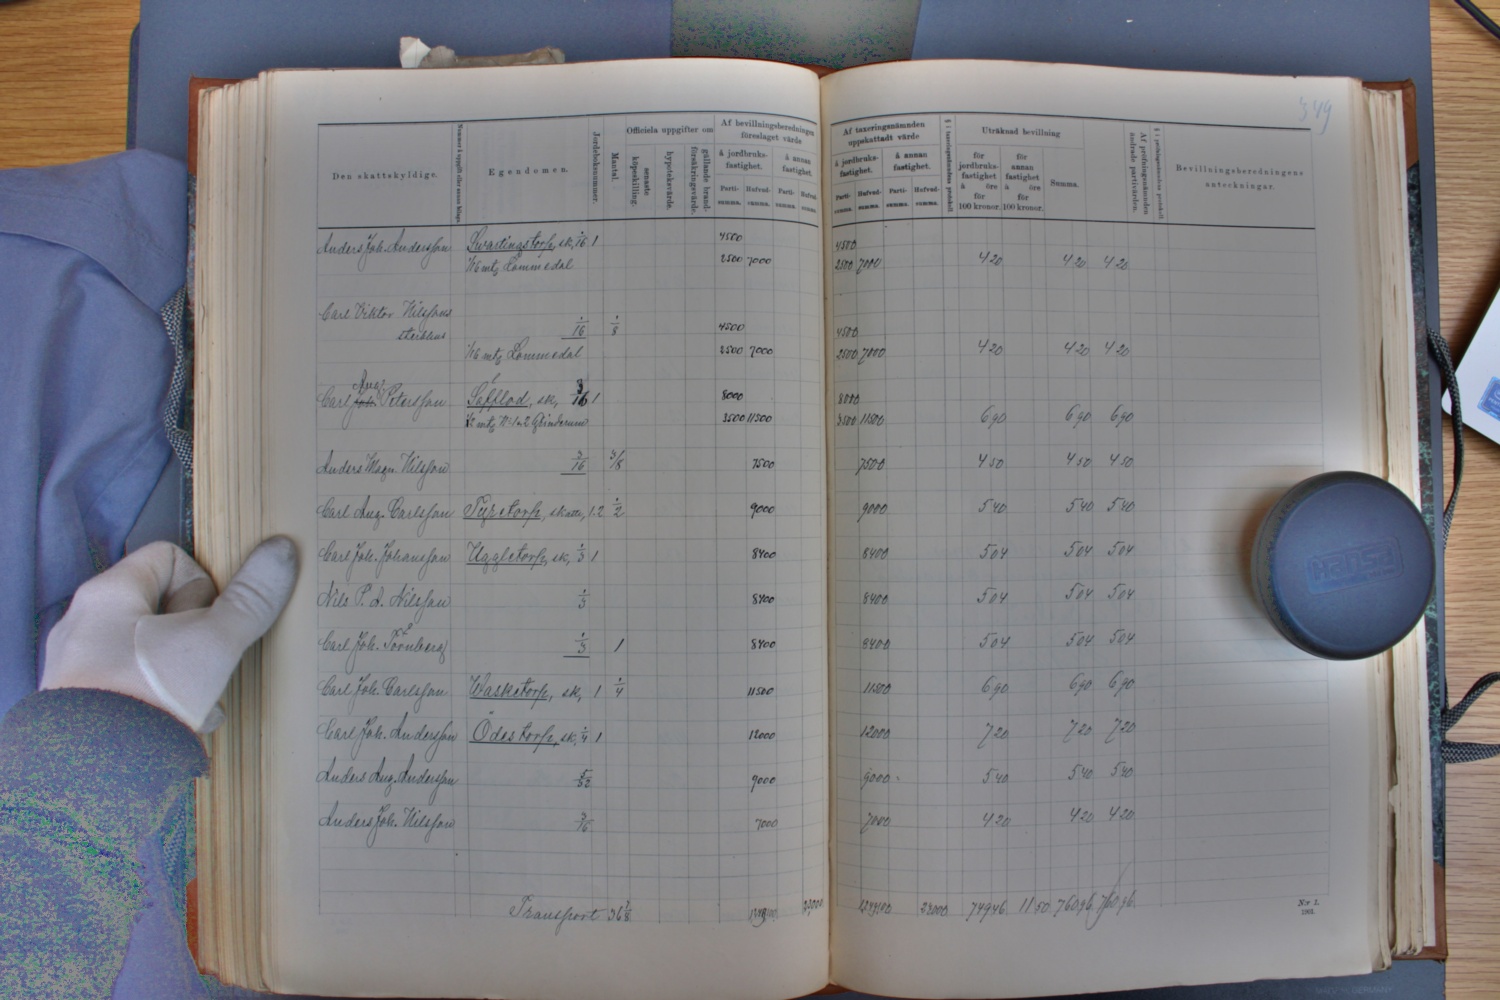 349
Den skattskyldige.
Nummer å uppgift eller annan bilaga.
Egendomen.
Jordeboksnummer.
Mantal.
Officiela uppgifter om
senaste köpeskilling.
hypoteksvärde.
gällande brandförsäkringsvärde.
Af bevillningsberedningen föreslaget värde
å jordbruksfastighet.
å annan fastighet.
Partisumma.
Hufvudsumma.
Partisumma.
Hufvudsumma.
Af taxeringsnämnden uppskattadt värde
å jordbruksfastighet.
å annan fastighet.
Partisumma.
Hufvudsumma.
Partisumma.
Hufvudsumma.
§ i taxeringsnämndens protokoll.
Uträknad bevillning
för jordbruksfastighet à öre för 100 kronor.
för annan fastighet à öre för 100 kronor.
Summa.
Af pröfningsnämnden ändrade partivärden.
Bevillningsberedningens anteckningar.
Anders Joh. Andersson Swartingstorp, sk, 1/16 1 4500 4500
1/16 mtg Lommedal 2500 7000 2500 7000 4 20 4 20 4 20
Carl Viktor Nilssons
sterbhus 1/16 1/8 4500 4500
1/16 mtg Lommedal 2500 7000 2500 7000 4 20 4 20 4 20
Aug.
Carl Joh. Petersson sk, 3/16 1 8000 8000
3500 11500 3500 11500 6 90 6 90 6 90
Anders Magn. Nilsson 3/16 3/8 7500 7500 4 50 4 50 4 50
Carl Aug. Carlsson skatte, 1.2 1/2 9000 9000 5 40 5 40 5 40
Carl Joh. Johansson Uggletorp, sk, 1/3 1 8400 8400 5 04 5 04 5 04
Nils P. J. Nilsson 1/3 8400 8400 5 04 5 04 5 04
Carl Joh. Törnberg 1/3 1 8400 8400 5 04 5 04 5 04
Carl Joh. Carlsson Wasketorp, sk, 1 1/4 11500 11500 6 90 6 90 6 90
Carl Joh. Andersson Ödestorp, sk, 1/4 1 12000 12000 7 20 7 20 7 20
Anders Aug. Andersson 5/32 9000 9000 5 40 5 40 5 40
Anders Joh. Nilsson 3/16 7000 7000 4 20 4 20 4 20
Transport 23000 749 46 11 50 760 96 760 96
N:r 1.
HANSA
MADE IN GERMANY